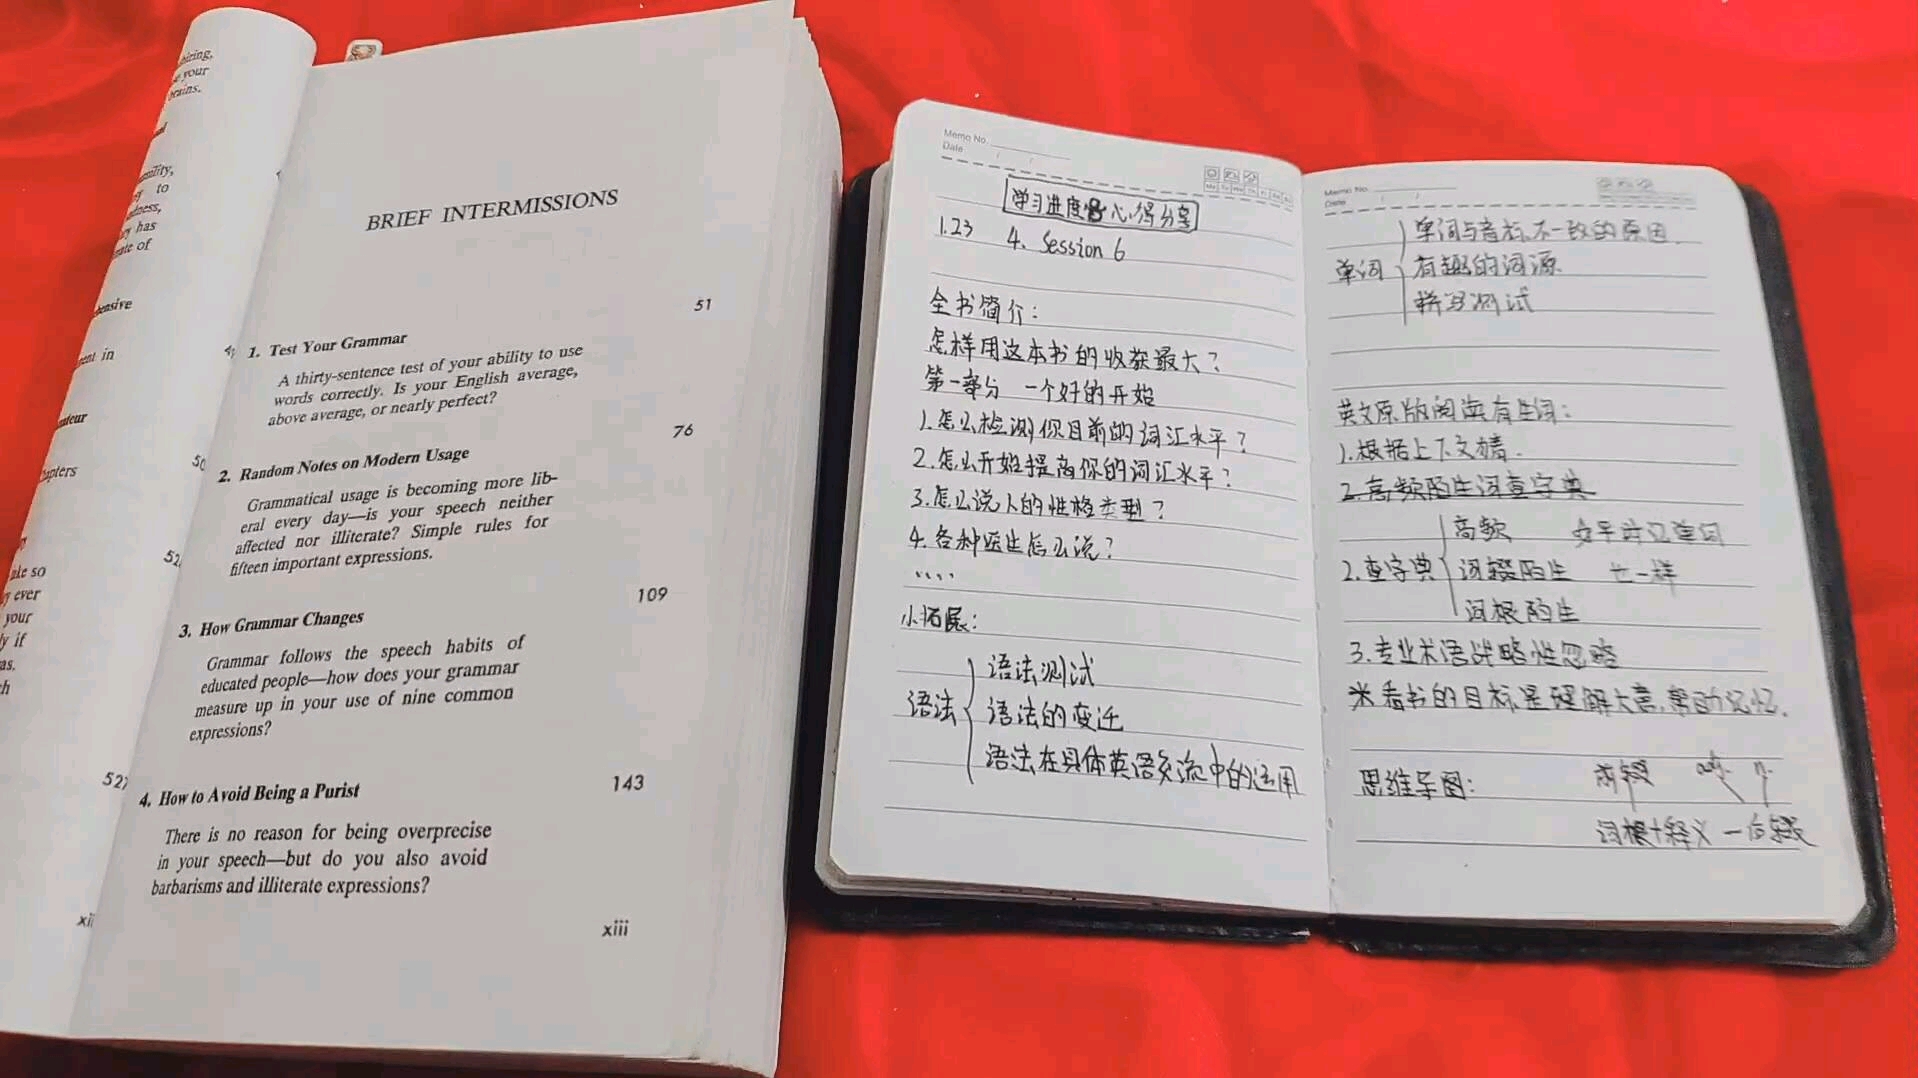 your
brains.
to
has
of
in
50
52
so
ever
your
if
527
BRIEF INTERMISSIONS
51
1. Test Your Grammar
A thirty-sentence test of your ability to use
words correctly. Is your English average,
above average, or nearly perfect?
76
2. Random Notes on Modern Usage
Grammatical usage is becoming more lib-
eral every day—is your speech neither
affected nor illiterate? Simple rules for
fifteen important expressions.
109
3. How Grammar Changes
Grammar follows the speech habits of
educated people—how does your grammar
measure up in your use of nine common
expressions?
143
4. How to Avoid Being a Purist
There is no reason for being overprecise
in your speech—but do you also avoid
barbarisms and illiterate expressions?
xiii
Memo No.
Date / /
学习进度&心得分享
1.23 4. Session 6
全书简介:
怎样用这本书的收获最大?
第一部分 一个好的开始
1.怎么检测你目前的词汇水平?
2.怎么开始提高你的词汇水平?
3.怎么说人的性格类型?
4.各种医生怎么说?
....
小拓展:
语法
语法测试
语法的变迁
语法在具体英语交流中的运用
Memo No.
Date / /
单词
单词与音标不一致的原因.
有趣的词源
拼写测试
英文原版阅读有生词:
1.根据上下文猜.
2.高频陌生词查字典
2.查字典
高频
词缀陌生 也一样
词根陌生
3.专业术语战略性忽略
米看书的目标是理解大意,帮助记忆.
思维导图: 前缀
词根+释义 一后缀